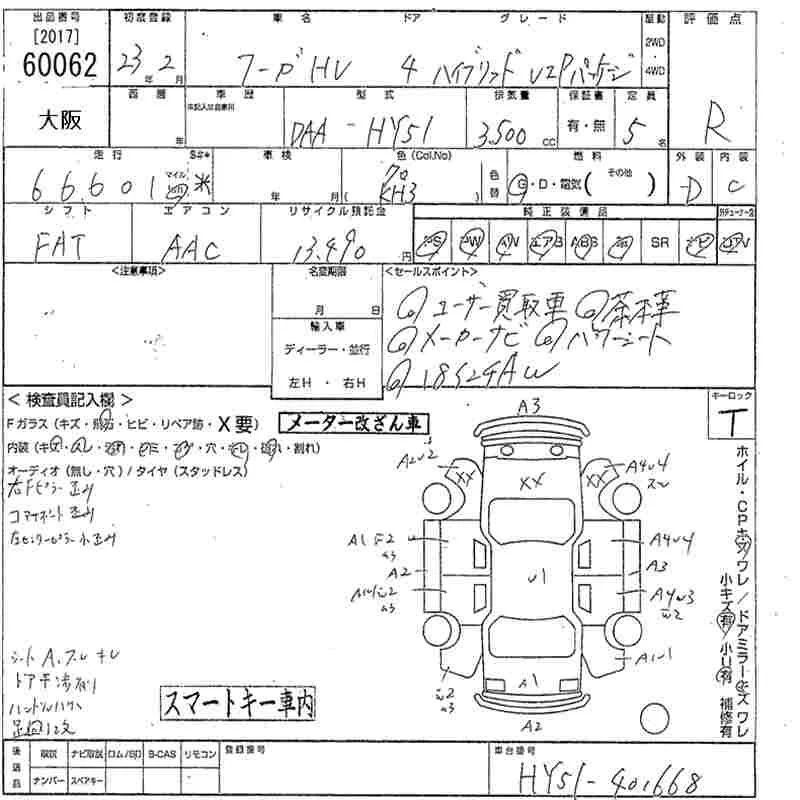 出品番号 初度登録 車名 ドア グレード 駆動 評価点
[2017]
60062 23年 2月 フーガHV 4 ハイブリッド VIPパッケージ 2WD 4WD
大阪 西暦 年 車歴 未記入は自家用 型式 排気量 保証書 定員
DAA-HY51 3,500 CC 有・無 5名 R
走行 S#* 車検 色(Col.No) 燃料 外装 内装
66,601 マイル km 米 年 月 クロ KH3 色替 G・D・電気( その他 ) D C
シフト エアコン リサイクル預託金 純正装備品
FAT AAC 13,490円 PS PW AW エアB ABS SR ナビ TV
<注意事項> 名変期限 <セールスポイント>
月 日 ユーザー買取車 茶本革
輸入車 メーカーナビ パワーシート
ディーラー・並行 18インチAW
左H・右H
<検査員記入欄> キーロック
Fガラス(キズ・飛石・ヒビ・リペア跡・X要) メーター改ざん車 T
内装(キズ・ ・穴・ ・割れ)
オーディオ(無し・穴)/タイヤ(スタッドレス)
右Fピラー歪み
コアサポート歪み
右センターピラー小歪み
A3
A2U2 XX XX XX A4U4
A1 A4U4
A2 U1 A3
A4U3
A1U1
A1
A2
ホイル・CPキズ ワレ/ドアミラーキズ ワレ
小キズ有/小U有 補修有
シートA、スレ キレ
スマートキー車内
後送品 取説 ナビ取説 ロム/SD B-CAS リモコン 登録番号 車台番号
ナンバー スペアキー HY51-401668